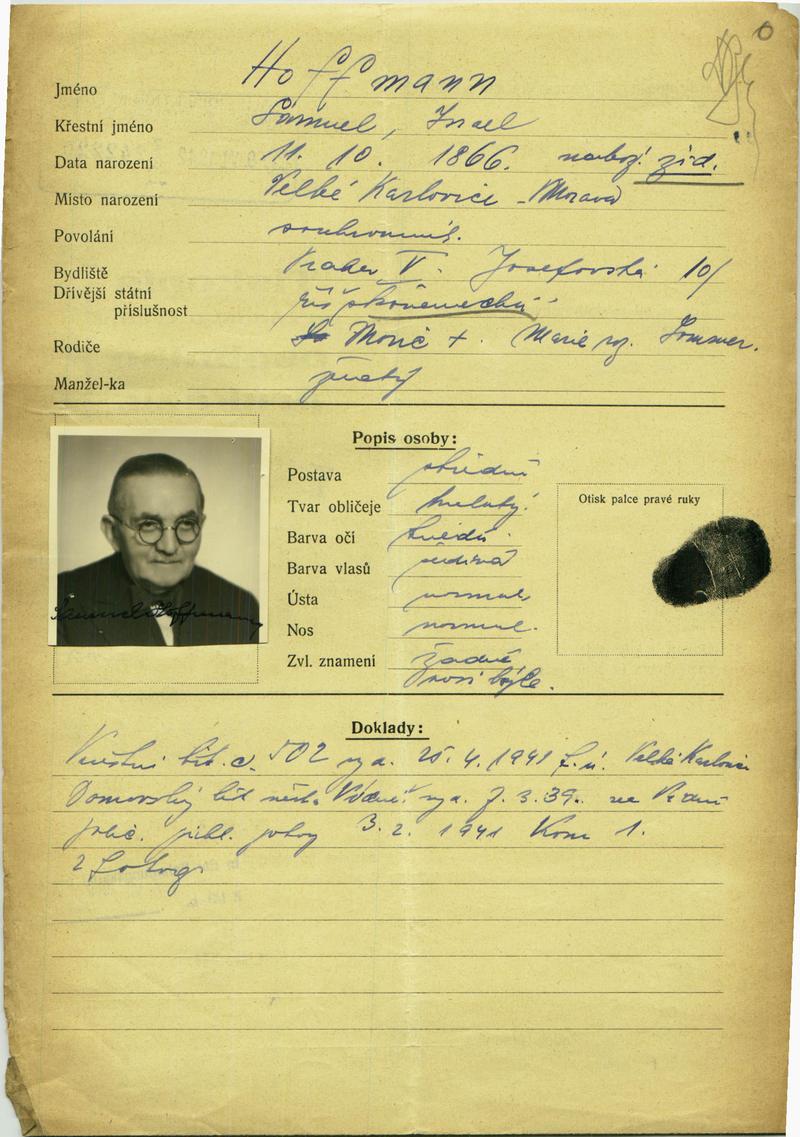 Jméno Hoffmann
Křestní jméno Samuel, Israel
Data narození 11. 10. 1866. nábož. žid.
Místo narození Velké Karlovice - Morava
Povolání soukromník.
Bydliště Praha V. Josefovská 10/
Dřívější státní
příslušnost říšskoněmecká
Rodiče Moric + Marie roz. Sommer.
Manžel-ka
Popis osoby:
Postava střední
Tvar obličeje kulatý.
Otisk palce pravé ruky
Barva očí hnědá.
Barva vlasů šedivá
Ústa normal.
Samuel Hoffmann
Nos normal.
Zvl. znamení žádné
nosí brýle.
Doklady:
Křestní list č. 502 vyd. 25. 4. 1941 f. ú. Velké Karlovice
Domovský list města Vídně vyd. 7. 3. 39. ve Vídni
polic. přihl. 3. 2. 1941 Kom 1.
2 fotogr.